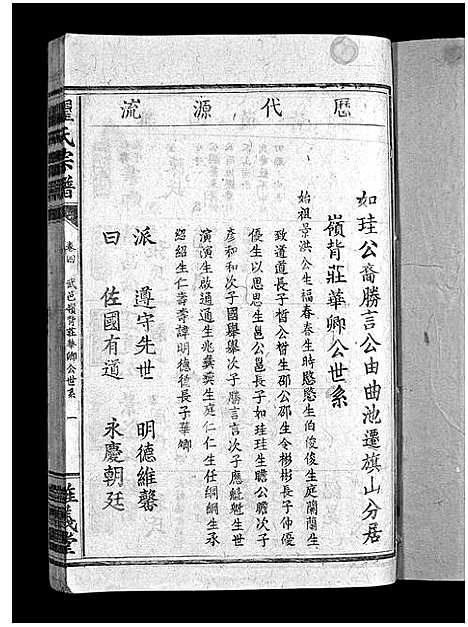 歷代源流
如珪公裔勝言公由曲池遷旗山分居
嶺背莊華卿公世系
始祖景洪公生福春春生時愍愍生伯俊俊生庭蘭蘭生
致道道長子晳公晳生邵公邵生令彬彬長子仲優
優生以思思生邑公邑長子如珪珪生瞻公瞻次子
彥和和次子國舉舉次子勝言言次子應魁魁生世
演演生啟通通生兆彝彝生庭仁仁生任綱綱生承
紹紹生仁壽壽諱明德德長子華卿
派 遵守先世 明德維馨
曰 佐國有道 永慶朝廷
氏宗譜
卷四
武邑嶺背莊華卿公世系
一
義堂